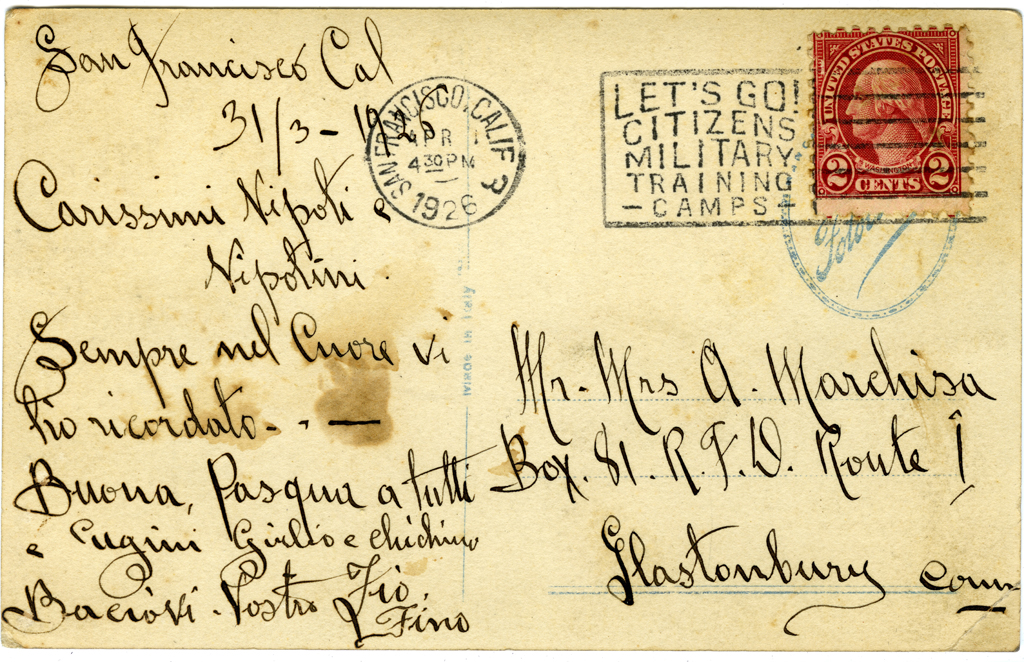 San Francisco Cal
31/3-1926
Carissimi Nipoti e
Nipotini.
Sempre nel Cuore vi
ho ricordato - . —
Buona, Pasqua a tutti
e Cugini Girlio e Chichino
Baciovi - Vostro Zio,
Fino
SAN FRANCISCO, CALIF. 3
APR 1
4 30 PM
1926
LET'S GO!
CITIZENS
MILITARY
TRAINING
- CAMPS -
UNITED STATES POSTAGE
WASHINGTON
2 CENTS 2
Made in Italy
Mr - Mrs A - Marchisa
Box. 81. R. F. D. Route 1
Glastonbury Conn